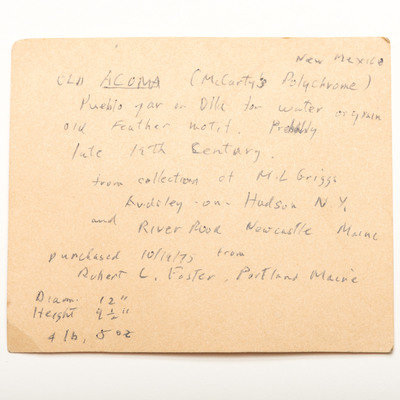 New Mexico
OLD ACOMA (McCarty's Polychrome)
Pueblo jar or Olla for water or grain
old Feather motif. Probably
late 19th Century.
from collection of M.L Griggs
Ardsley-on-Hudson N.Y.
and River Road Newcastle Maine
purchased from
Robert C. Foster, Portland Maine
Diam. 12"
Height 9½"
4 lb, 5 oz